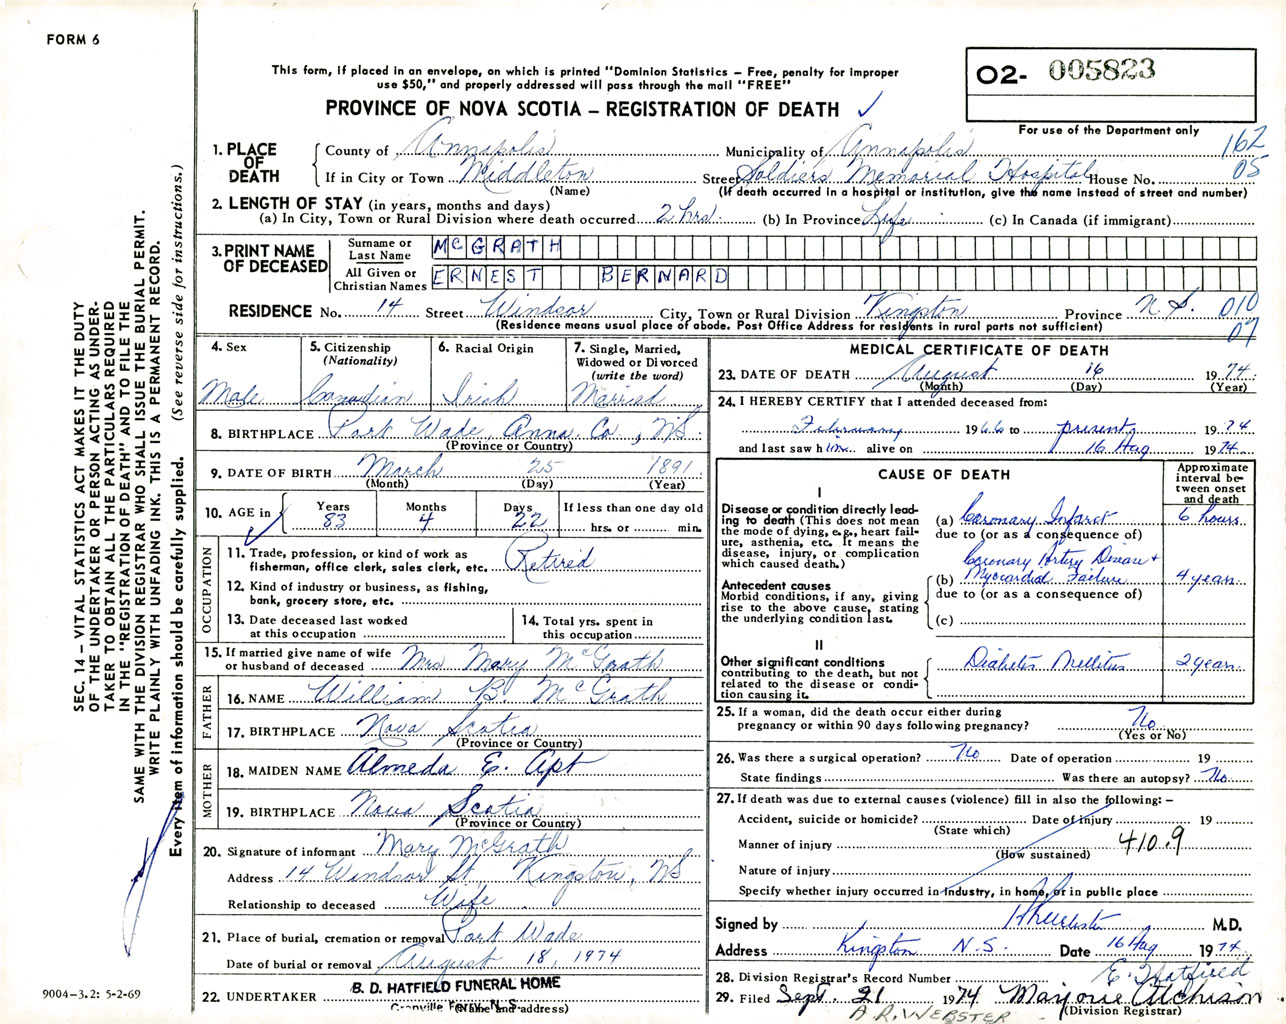 FORM 6
This form, if placed in an envelope, on which is printed "Dominion Statistics – Free, penalty for improper
use $50," and properly addressed will pass through the mail "FREE"
PROVINCE OF NOVA SCOTIA – REGISTRATION OF DEATH ✓
O2- 005823
For use of the Department only
162
05
1. PLACE OF DEATH
County of Annapolis Municipality of Annapolis
If in City or Town Middleton Street Soldiers Memorial Hospital House No.
(Name) (If death occurred in a hospital or institution, give the name instead of street and number)
2. LENGTH OF STAY (in years, months and days)
(a) In City, Town or Rural Division where death occurred 2 hrs. (b) In Province Life (c) In Canada (if immigrant)
3. PRINT NAME OF DECEASED
Surname or Last Name McGRATH
All Given or Christian Names ERNEST BERNARD
RESIDENCE No. 14 Street Windsor City, Town or Rural Division Kingston Province N.S. 010
(Residence means usual place of abode. Post Office Address for residents in rural parts not sufficient) 07
4. Sex
Male
5. Citizenship
(Nationality)
Canadian
6. Racial Origin
Irish
7. Single, Married,
Widowed or Divorced
(write the word)
Married
8. BIRTHPLACE Port Wade, Anna. Co, NS
(Province or Country)
9. DATE OF BIRTH March 25 1891
(Month) (Day) (Year)
10. AGE in
Years Months Days If less than one day old
83 4 22 hrs. or min.
OCCUPATION
11. Trade, profession, or kind of work as
fisherman, office clerk, sales clerk, etc. Retired
12. Kind of industry or business, as fishing,
bank, grocery store, etc.
13. Date deceased last worked
at this occupation
14. Total yrs. spent in
this occupation
15. If married give name of wife
or husband of deceased Mrs Mary McGrath
FATHER
16. NAME William B McGrath
17. BIRTHPLACE Nova Scotia
(Province or Country)
MOTHER
18. MAIDEN NAME Almeda E. Apt
19. BIRTHPLACE Nova Scotia
(Province or Country)
20. Signature of informant Mary McGrath
Address 14 Windsor St, Kingston, NS
Relationship to deceased Wife
21. Place of burial, cremation or removal Port Wade
Date of burial or removal August 18, 1974
22. UNDERTAKER B. D. HATFIELD FUNERAL HOME
Granville Ferry, N.S.
(Name and address)
MEDICAL CERTIFICATE OF DEATH
23. DATE OF DEATH August 16 1974
(Month) (Day) (Year)
24. I HEREBY CERTIFY that I attended deceased from:
February 1966 to present 1974
and last saw him alive on 16 Aug 1974
CAUSE OF DEATH
Approximate
interval be-
tween onset
and death
I
Disease or condition directly lead-
ing to death (This does not mean
the mode of dying, e.g., heart fail-
ure, asthenia, etc. It means the
disease, injury, or complication
which caused death.)
(a) Coronary Infarct 6 hours
due to (or as a consequence of)
Antecedent causes
Morbid conditions, if any, giving
rise to the above cause, stating
the underlying condition last.
Coronary Artery Disease +
(b) Myocardial Failure 4 years
due to (or as a consequence of)
(c)
II
Other significant conditions
contributing to the death, but not
related to the disease or condi-
tion causing it.
Diabetes Mellitus 2 years
25. If a woman, did the death occur either during
pregnancy or within 90 days following pregnancy? No
(Yes or No)
26. Was there a surgical operation? No Date of operation 19
State findings Was there an autopsy? No
27. If death was due to external causes (violence) fill in also the following: –
Accident, suicide or homicide? Date of injury 19
(State which)
Manner of injury 410.9
(How sustained)
Nature of injury
Specify whether injury occurred in industry, in home, or in public place
Signed by M.D.
Address Kingston N.S. Date 16 Aug 1974
28. Division Registrar's Record Number E. Hatfield
29. Filed Sept. 21 1974 Marjorie Aitchison
A R. WEBSTER (Division Registrar)
SEC. 14 – VITAL STATISTICS ACT MAKES IT THE DUTY
OF THE UNDERTAKER OR PERSON ACTING AS UNDER-
TAKER TO OBTAIN ALL THE PARTICULARS REQUIRED
IN THE "REGISTRATION OF DEATH" AND TO FILE THE
SAME WITH THE DIVISION REGISTRAR WHO SHALL ISSUE THE BURIAL PERMIT.
WRITE PLAINLY WITH UNFADING INK. THIS IS A PERMANENT RECORD.
Every item of information should be carefully supplied. (See reverse side for instructions.)
9004-3.2: 5-2-69